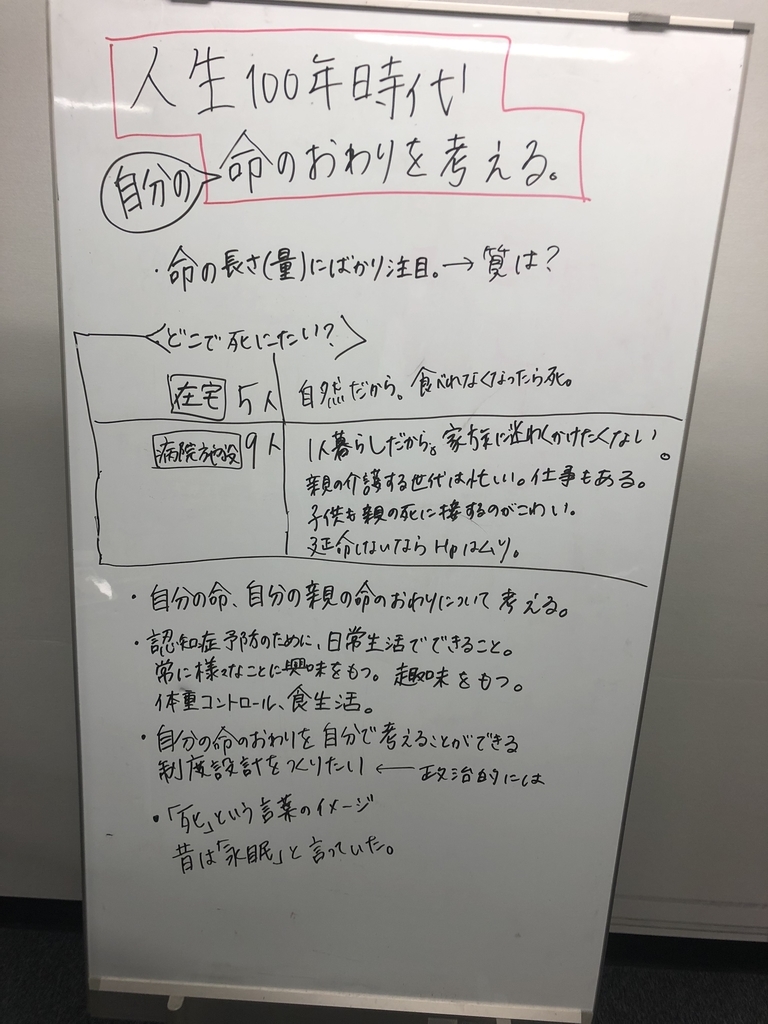 人生100年時代
自分の命のおわりを考える。
・命の長さ(量)にばかり注目。→質は?
どこで死にたい?
在宅 5人 自然だから。食べれなくなったら死。
病院施設 9人 1人暮らしだから。家族に迷わくかけたくない。
親の介護する世代は忙しい。仕事もある。
子供も親の死に接するのがこわい。
延命しないなら Hpはムリ。
・自分の命、自分の親の命のおわりについて考える。
・認知症予防のために、日常生活でできること。
常に様々なことに興味をもつ。趣味をもつ。
体重コントロール、食生活。
・自分の命のおわりを自分で考えることができる
制度設計をつくりたい ← 政治的には
・「死」という言葉のイメージ
昔は「永眠」と言っていた。